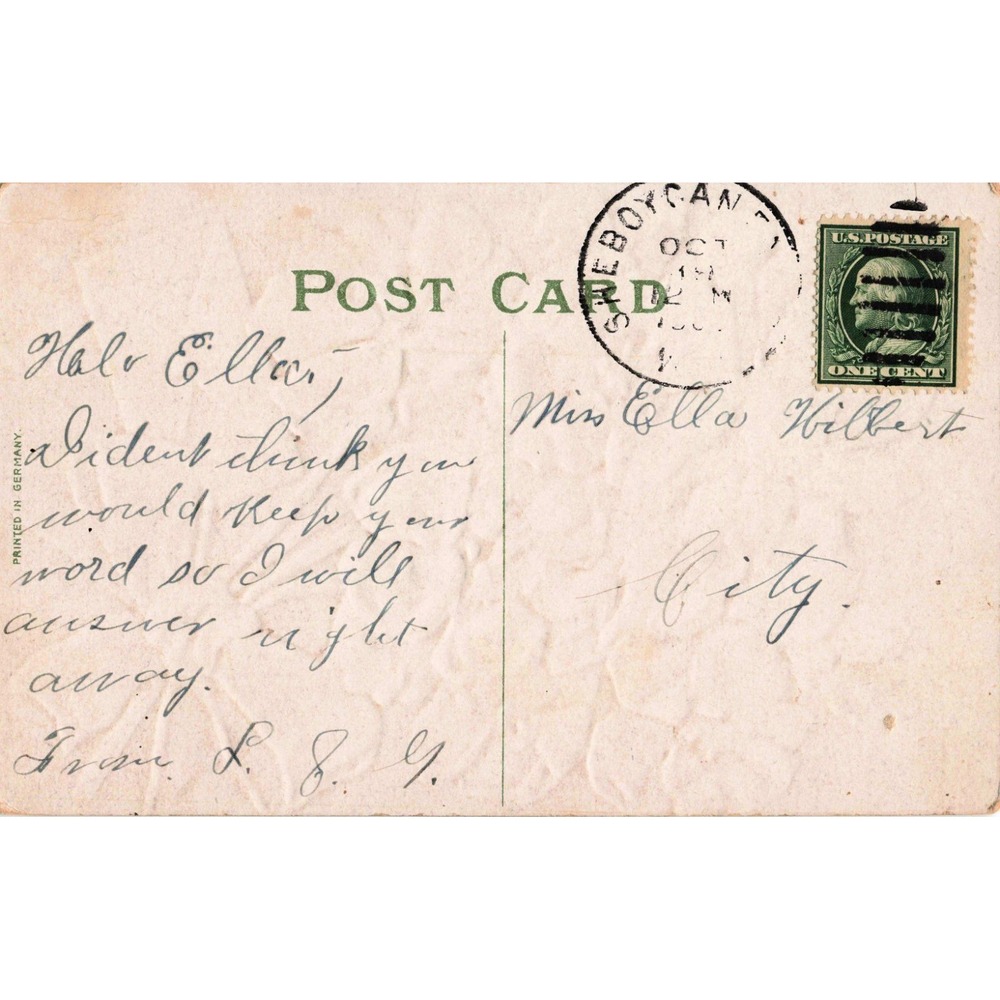 POST CARD
SHEBOYGAN
OCT
18
12 M
U.S. POSTAGE
ONE CENT
PRINTED IN GERMANY.
Halo Ella,
I dident think you
would keep your
word so I will
answer right
away.
From L. J. G.
Miss Ella Hilbert
City.